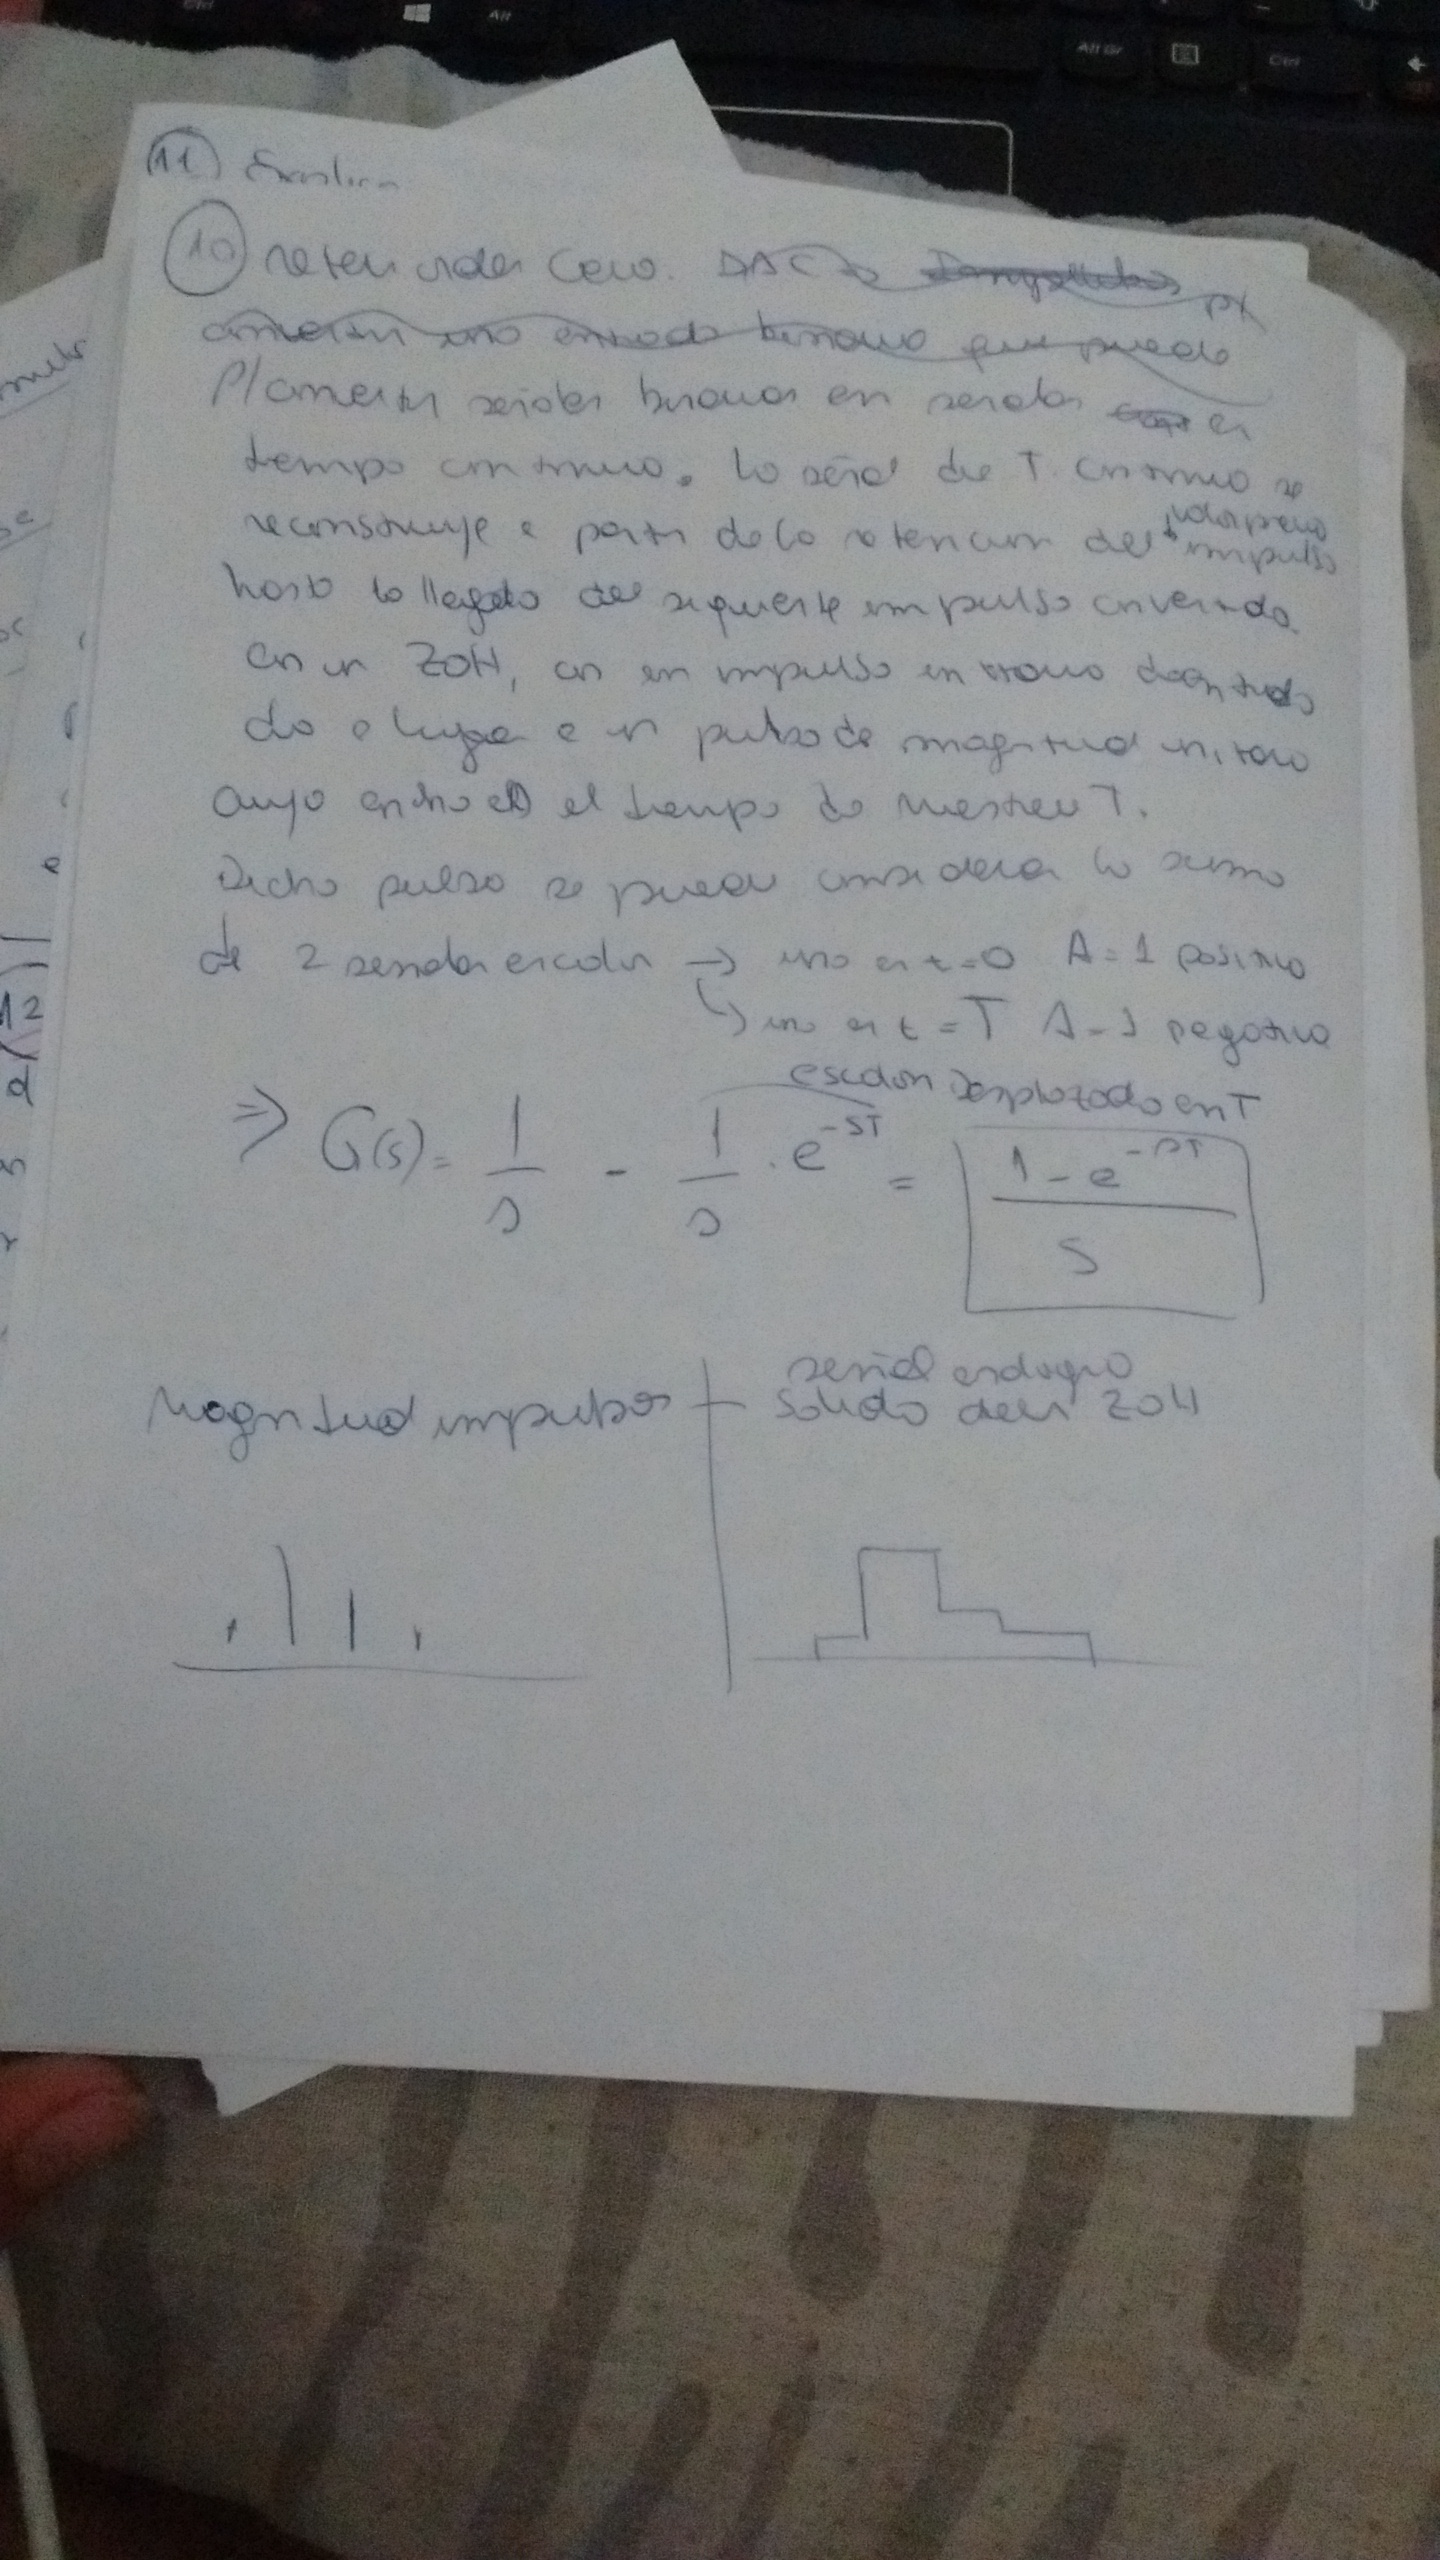 Ctrl
Alt
Alt Gr
Ctrl
11
10 retenedor Cero. DAC
convertir una entrada binaria que puede
P/convertir señales binarias en señales en
tiempo continuo. la señal de T. continuo se
reconstruye a partir de la retencion del valor previo impulso
hasta la llegada del siguiente impulso convertido.
en un ZOH, con un impulso entrada
da a lugar a un pulso de magnitud unitaria
cuyo ancho es el tiempo de muestreo T.
Dicho pulso se puede considerar la suma
de 2 señales escalon → una en t=0 A=1 positivo
↳ una en t=T A=1 negativo
escalon Desplazado en T
⇒ G(s) = 1/s - 1/s . e^-sT = (1 - e^-sT)/s
Magnitud impulsos
señal analogica
salida del ZOH
12
d